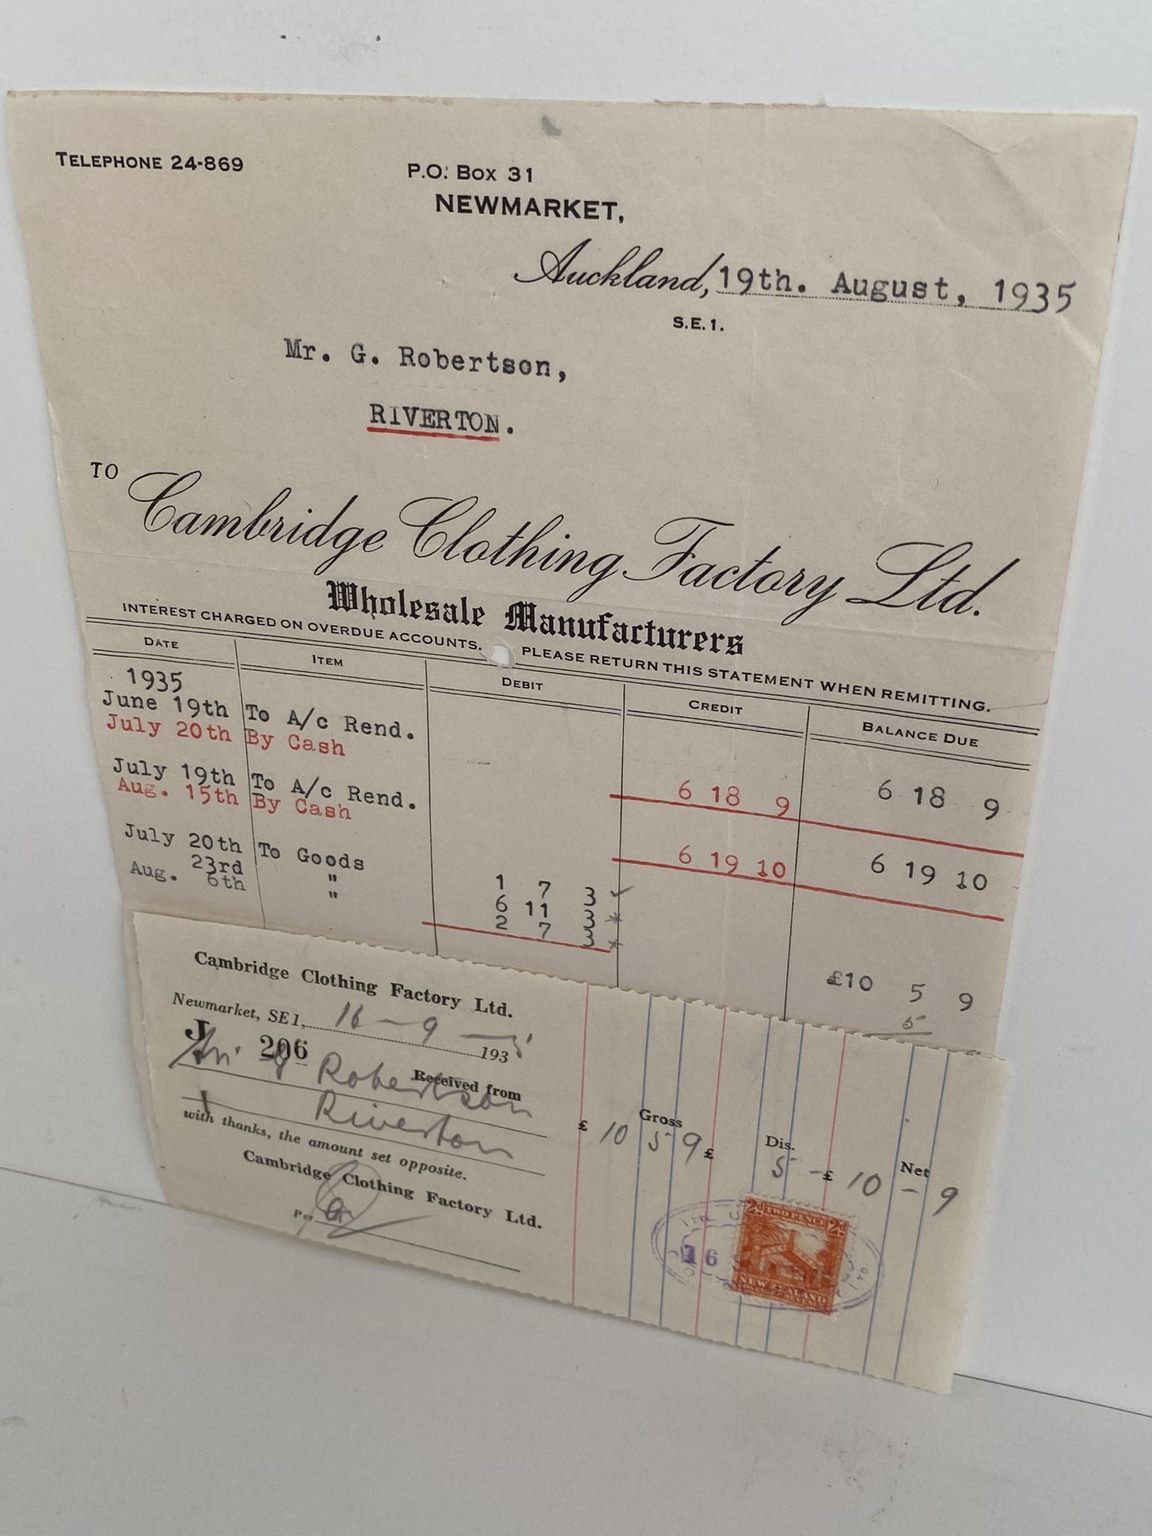 TELEPHONE 24-869
P.O. BOX 31
NEWMARKET,
Auckland, 19th. August, 1935
S.E.1.
Mr. G. Robertson,
RIVERTON.
TO
Cambridge Clothing Factory Ltd.
Wholesale Manufacturers
INTEREST CHARGED ON OVERDUE ACCOUNTS. PLEASE RETURN THIS STATEMENT WHEN REMITTING.
DATE ITEM DEBIT CREDIT BALANCE DUE
1935
June 19th To A/c Rend. 6 18 9
July 20th By Cash 6 18 9
July 19th To A/c Rend. 6 19 10
Aug. 15th By Cash 6 19 10
July 20th To Goods 1 7 3
23rd " 6 11 3
Aug. 6th " 2 7 3
£10 5 9
5
Cambridge Clothing Factory Ltd.
Newmarket, SE1, 16 - 9 - 1935
J 206
Received from
Mr G Robertson
Riverton
with thanks, the amount set opposite.
Cambridge Clothing Factory Ltd.
Per
Gross Dis. Net
£ 10 5 9 £ 5 - £ 10 - 9
2d TWO PENCE 2d
NEW ZEALAND
16
LTD.